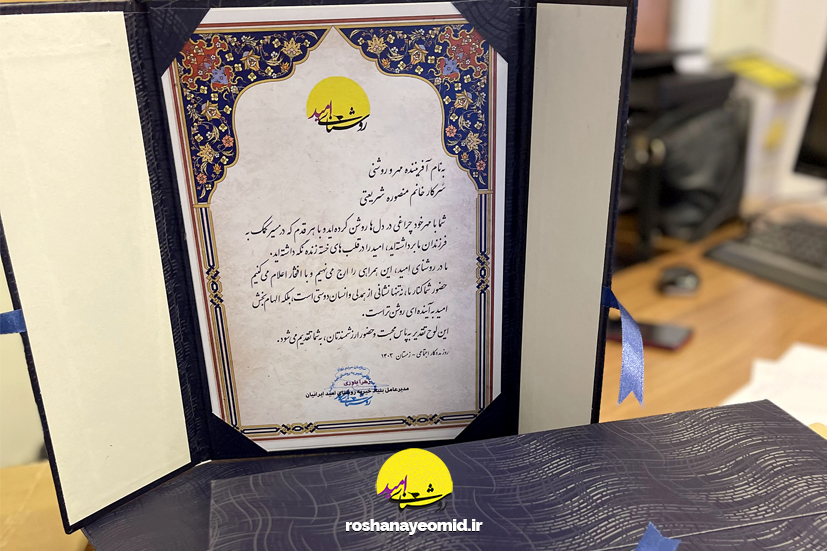 روشنای امید
به نام آفریننده مهر و روشنی
سرکار خانم منصوره شریعتی
شما با مهر خود چراغی در دل‌ها روشن کرده‌اید و با هر قدم که در مسیر کمک به
فرزندان ما برداشته‌اید، امید را در قلب‌های خسته زنده نگه داشته‌اید.
ما در روشنای امید، این همراهی را ارج می‌نهیم و با افتخار اعلام می‌کنیم
حضور شما کنار ما، نه تنها نشانی از همدلی و انسان دوستی است، بلکه الهام بخش
امید به آینده‌ای روشن تر است.
این لوح تقدیر به پاس محبت و حضور ارزشمندتان، به شما تقدیم می‌شود.
روز مددکار اجتماعی - زمستان ۱۴۰۳
زهرا یاوری
مدیرعامل بنیاد خیریه روشنای امید ایرانیان
روشنای امید
roshanayeomid.ir